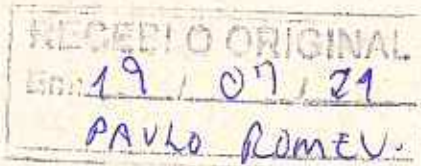 RECEBI O ORIGINAL
Em: 19 / 07 / 21
PAVLO ROMEU.